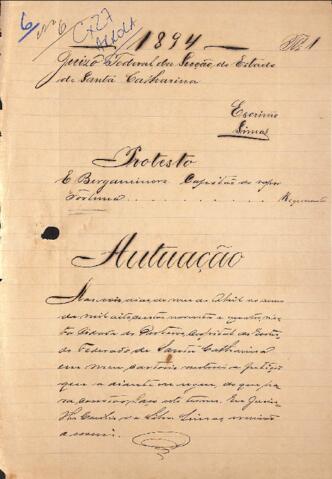 6 nº 6 CX27
1894 Fl. 1
Juizo Federal da Secção do Estado
de Santa Catharina
Escrivão
Simas
Protesto
E. Bergaminore Capitão do vapor
Fortuna . . . . . . . . . . Requerente
Autuação
Aos seis dias do mez de Abril do anno
de mil oitocentos noventa e quatro, nes-
ta Cidade do Desterro, Capital do Esta-
do Federado de Santa Catharina
em meu cartorio autuo a petição
que a diante se segue, do que pa-
ra constar faço este termo. Eu
da Silva Simas escrivão